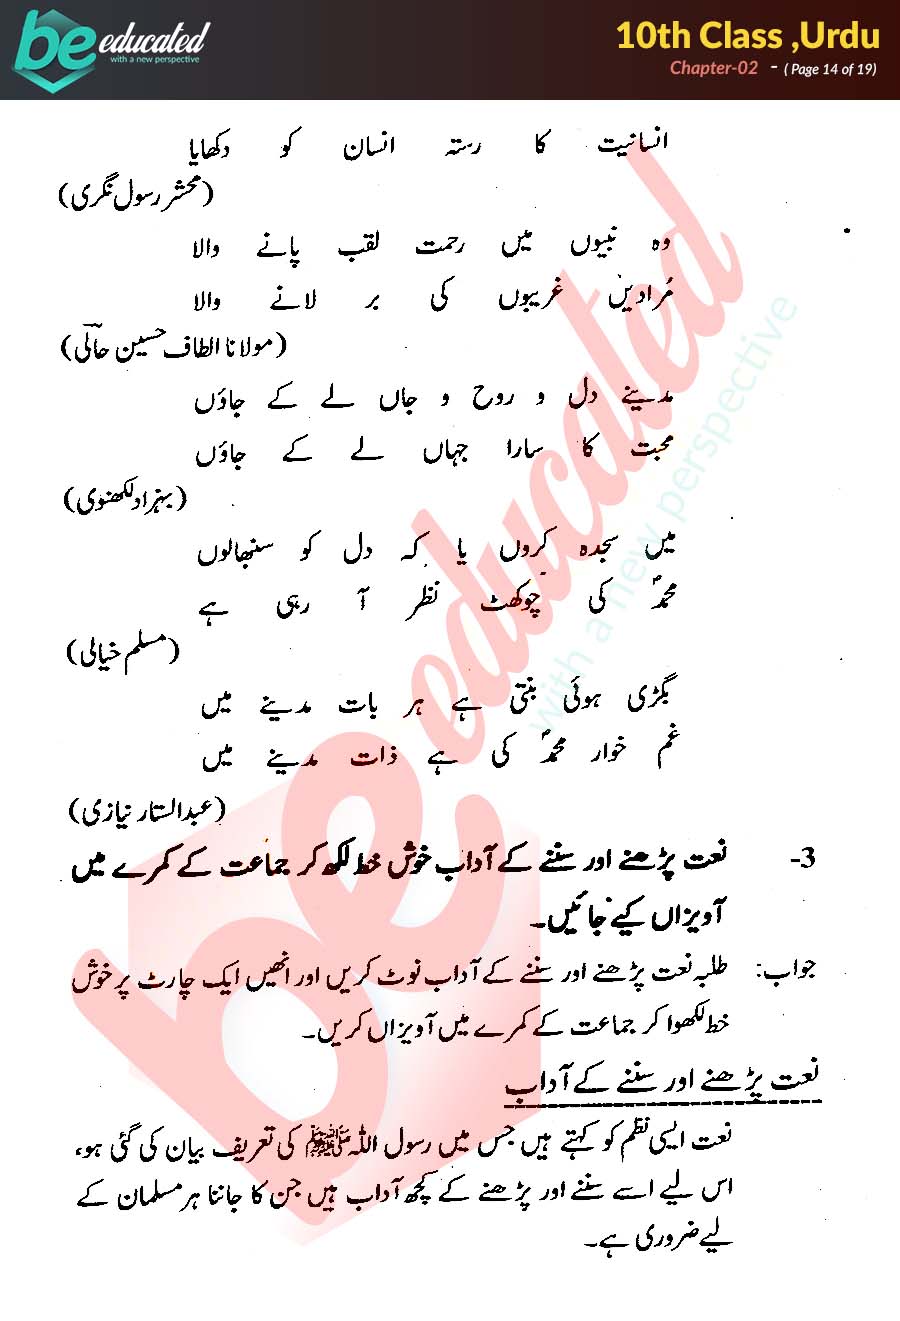 be educated
with a new perspective
10th Class ,Urdu
Chapter-02 - ( Page 14 of 19)
انسانیت کا رستہ انسان کو دکھایا
(محشر رسول نگری)
وہ نبیوں میں رحمت لقب پانے والا
مُرادیں غریبوں کی بر لانے والا
(مولانا الطاف حسین حالیؔ)
مدینے دل و روح و جاں لے کے جاؤں
محبت کا سارا جہاں لے کے جاؤں
(بہزاد لکھنوی)
میں سجدہ کروں یا کہ دل کو سنبھالوں
محمدؐ کی چوکھٹ نظر آ رہی ہے
(مسلم خیالی)
بگڑی ہوئی بنتی ہے ہر بات مدینے میں
غم خوار محمدؐ کی ہے ذات مدینے میں
(عبدالستار نیازی)
3- نعت پڑھنے اور سننے کے آداب خوش خط لکھ کر جماعت کے کمرے میں
آویزاں کیے جائیں۔
جواب: طلبہ نعت پڑھنے اور سننے کے آداب نوٹ کریں اور انھیں ایک چارٹ پر خوش
خط لکھوا کر جماعت کے کمرے میں آویزاں کریں۔
نعت پڑھنے اور سننے کے آداب
نعت ایسی نظم کو کہتے ہیں جس میں رسول اللہ ﷺ کی تعریف بیان کی گئی ہو،
اس لیے اسے سننے اور پڑھنے کے کچھ آداب ہیں جن کا جاننا ہر مسلمان کے
لیے ضروری ہے۔
be educated
with a new perspective